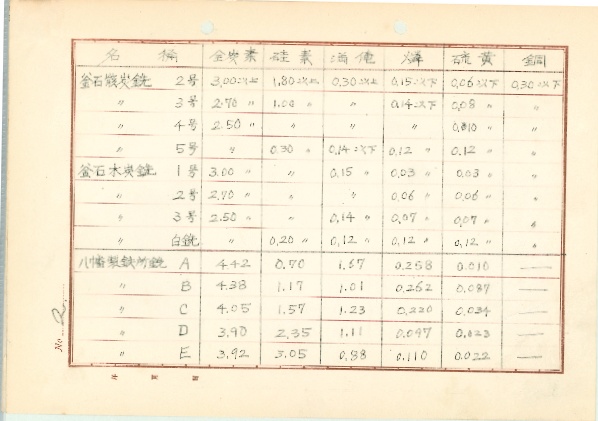 名 稱 全炭素 硅素 滿俺 燐 硫黄 銅
釜石骸炭銑 2号 3.00以上 1.80以上 0.30以上 0.15以下 0.06以下 0.30以下
〃 3号 2.70〃 1.00〃 〃 0.14以下 0.08〃 〃
〃 4号 2.50〃 〃 〃 〃 0.010〃 〃
〃 5号 〃 0.30〃 0.14以下 0.12〃 0.12〃 〃
釜石木炭銑 1号 3.00〃 〃 0.15〃 0.03〃 0.03〃 〃
〃 2号 2.70〃 〃 〃 0.06〃 0.06〃 〃
〃 3号 2.50〃 〃 0.14〃 0.07〃 0.07〃 〃
〃 白銑 〃 0.20〃 0.12〃 0.12〃 0.12〃 〃
八幡製鉄所銑 A 4.42 0.70 1.57 0.258 0.010 —
〃 B 4.38 1.17 1.01 0.262 0.087 —
〃 C 4.05 1.57 1.23 0.220 0.034 —
〃 D 3.90 2.35 1.11 0.097 0.023 —
〃 E 3.92 3.05 0.88 0.110 0.022 —
No. 2